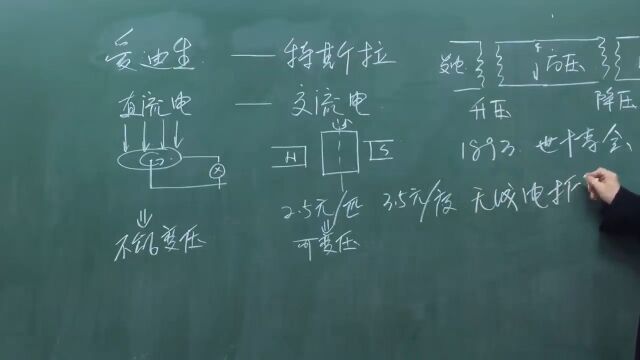 爱迪生 —— 特斯拉
直流电 — 交流电
发电 高压
升压 降压
N S
1893. 世博会
2.5元/ 3.5元/度 无线电
不能变压 可变压